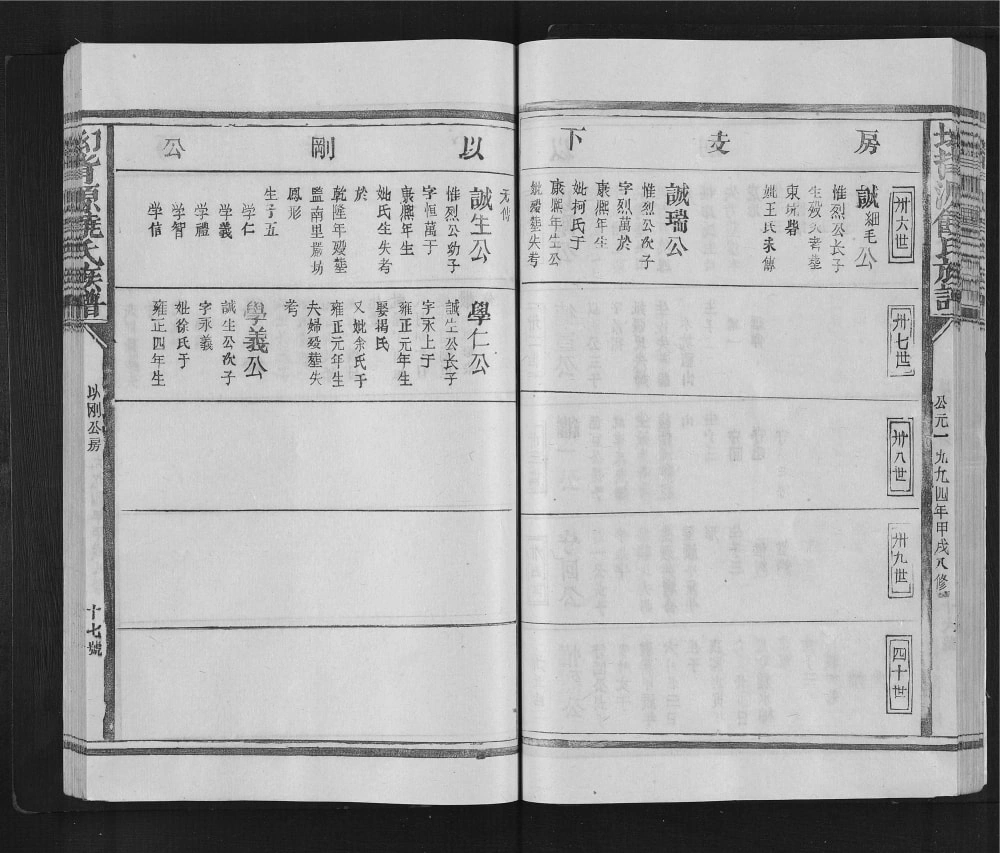 房支下
卅六世
誠細毛公
惟烈公長子
生歿失考塟
東坑砦
妣王氏未傳
誠瑞公
惟烈公次子
字烈萬於
康熈年生
妣柯氏于
康熈年生公
妣歿塟失考
卅七世
卅八世
卅九世
四十世
公元一九九四年甲戌八修
以剛公
誠生公
惟烈公幼子
字恒萬于
康熈年生
妣氏生失考
於
乾隆年歿塟
監南里嚴坊
鳳形
生子五
学仁
学義
学禮
学智
学信
學仁公
誠生公長子
字永上于
雍正元年生
娶揭氏
又妣余氏于
雍正元年生
夫婦歿塟失
考
學義公
誠生公次子
字永義
妣徐氏于
雍正四年生
源饒氏族譜
以剛公房
十七號